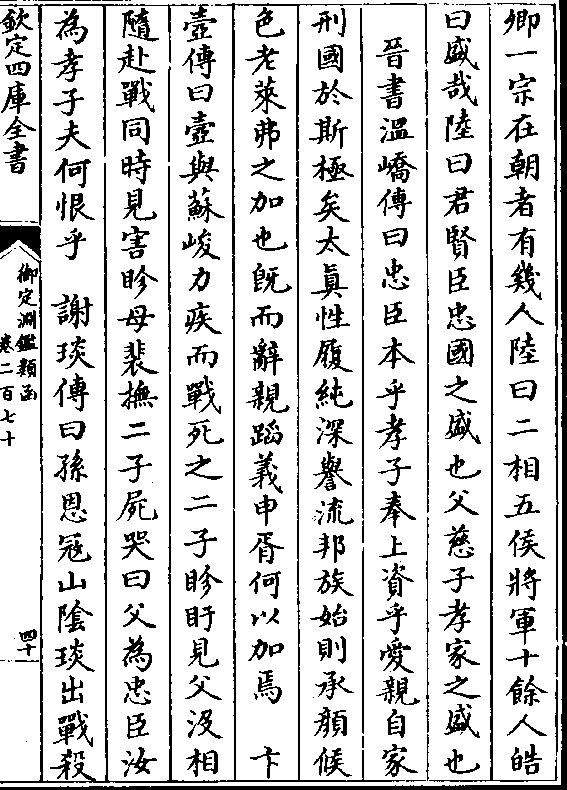 卿一宗在朝者有幾人陸曰二相五侯將軍十餘人皓
曰盛哉陸曰君賢臣忠國之盛也父慈子孝家之盛也
晉書溫嶠傳曰忠臣本乎孝子奉上資乎愛親自家
刑國於斯極矣太眞性履純深譽流邦族始則承顔候
色老萊弗之加也旣而辭親蹈義申胥何以加焉　卞
壼傳曰壼與蘇峻力疾而戰死之二子眕盱見父没相
隨赴戰同時見害眕母裴撫二子屍哭曰父為忠臣汝
為孝子夫何恨乎　謝琰傳曰孫恩冦山隂琰出戰殺
欽定四庫全書
御定淵鑑類函
卷二百七十
四十